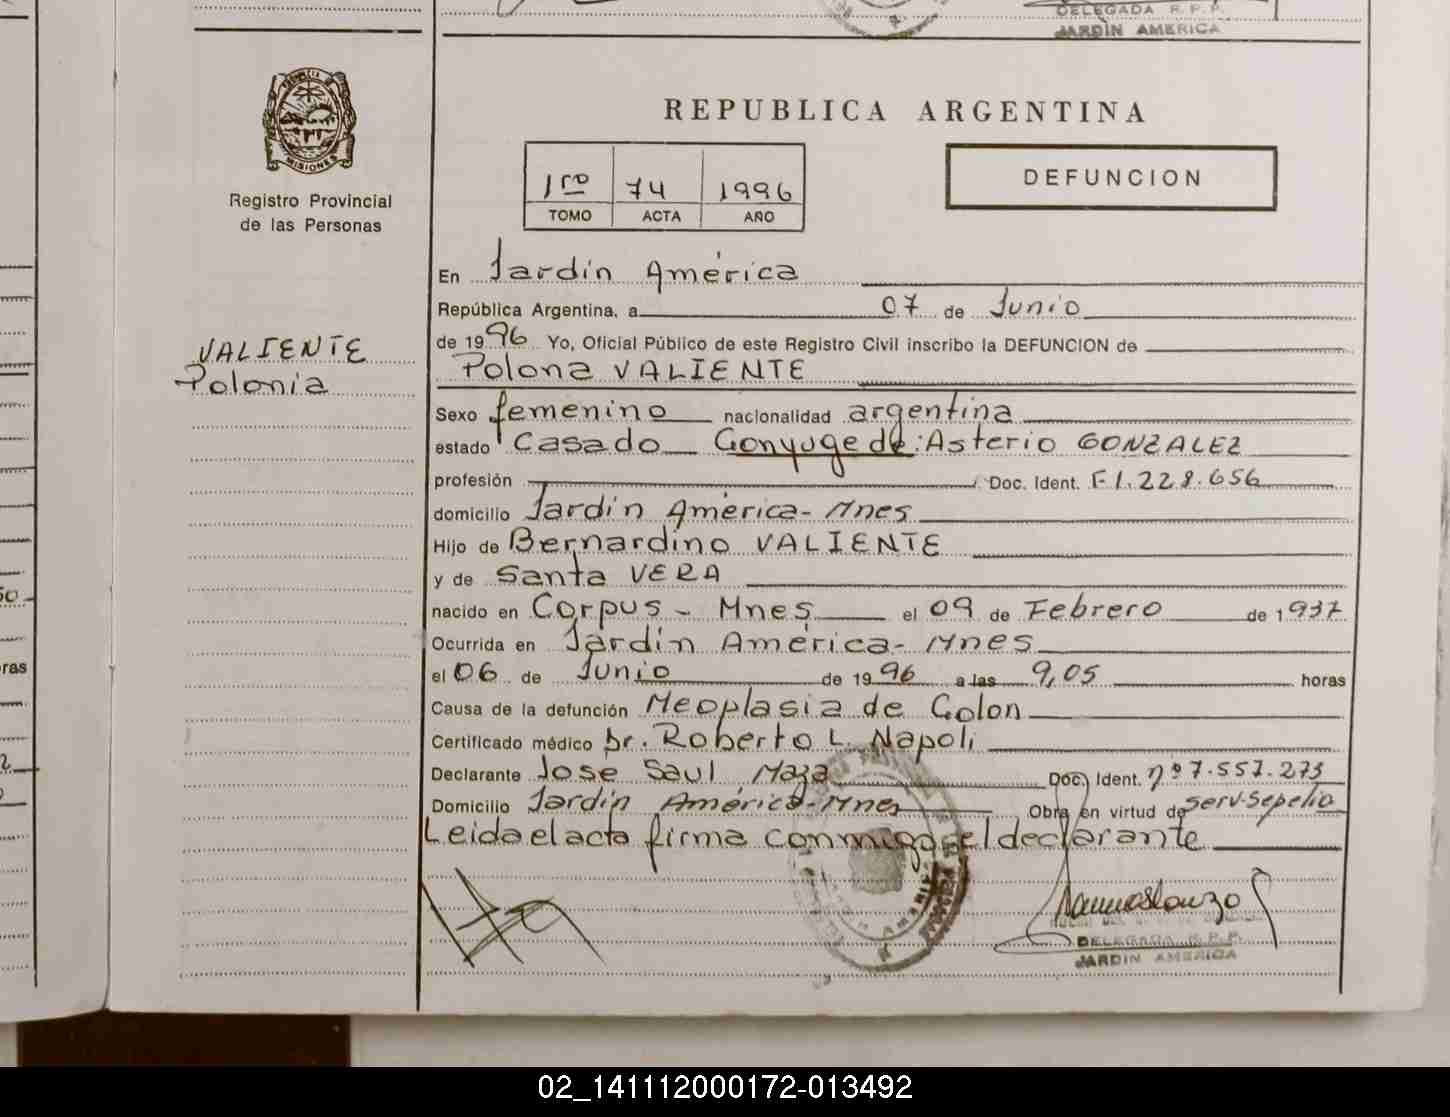 DELEGADA R. P. P.
JARDIN AMERICA
PROVINCIA DE
MISIONES
REPUBLICA ARGENTINA
1ro 74 1996
TOMO ACTA AÑO
DEFUNCION
Registro Provincial
de las Personas
VALIENTE
Polonia
En Jardin América
República Argentina, a 07 de Junio
de 1996 Yo, Oficial Público de este Registro Civil inscribo la DEFUNCION de
Polona VALIENTE
Sexo femenino nacionalidad argentina
estado Casado Conyuge de: Asterio GONZALEZ
profesión Doc. Ident. F1.228.656
domicilio Jardin América- Mnes
Hijo de Bernardino VALIENTE
y de Santa VERA
nacido en Corpus - Mnes el 09 de Febrero de 1937
Ocurrida en Jardin América- Mnes
el 06 de Junio de 1996 a las 9,05 horas
Causa de la defunción Neoplasia de Colon
Certificado médico Dr. Roberto L. Napoli
Declarante José Saul Maza Doc. Ident. nº 7.557.273
Domicilio Jardin América-Mnes Obra en virtud de Serv-Sepelio
Leida el acta firma conmigo el declarante
DELEGADA R. P. P.
JARDIN AMERICA
ras
02_141112000172-013492